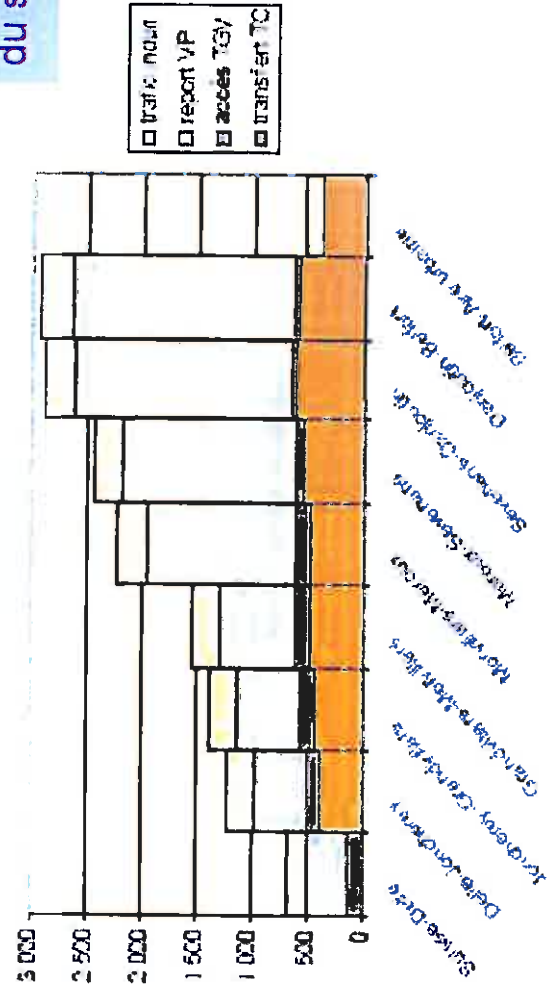 du s
trafic nouv
report VP
accès TGV
transfert TC
3 000
2 500
2 000
1 500
1 000
500
0
Suisse-Delle
Delle-Joncherey
Joncherey-Grandvillars
Grandvillars-Morvillars
Morvillars-Meroux
Meroux-Sevenans
Sevenans-Danjoutin
Danjoutin-Belfort
Belfort-Aire urbaine